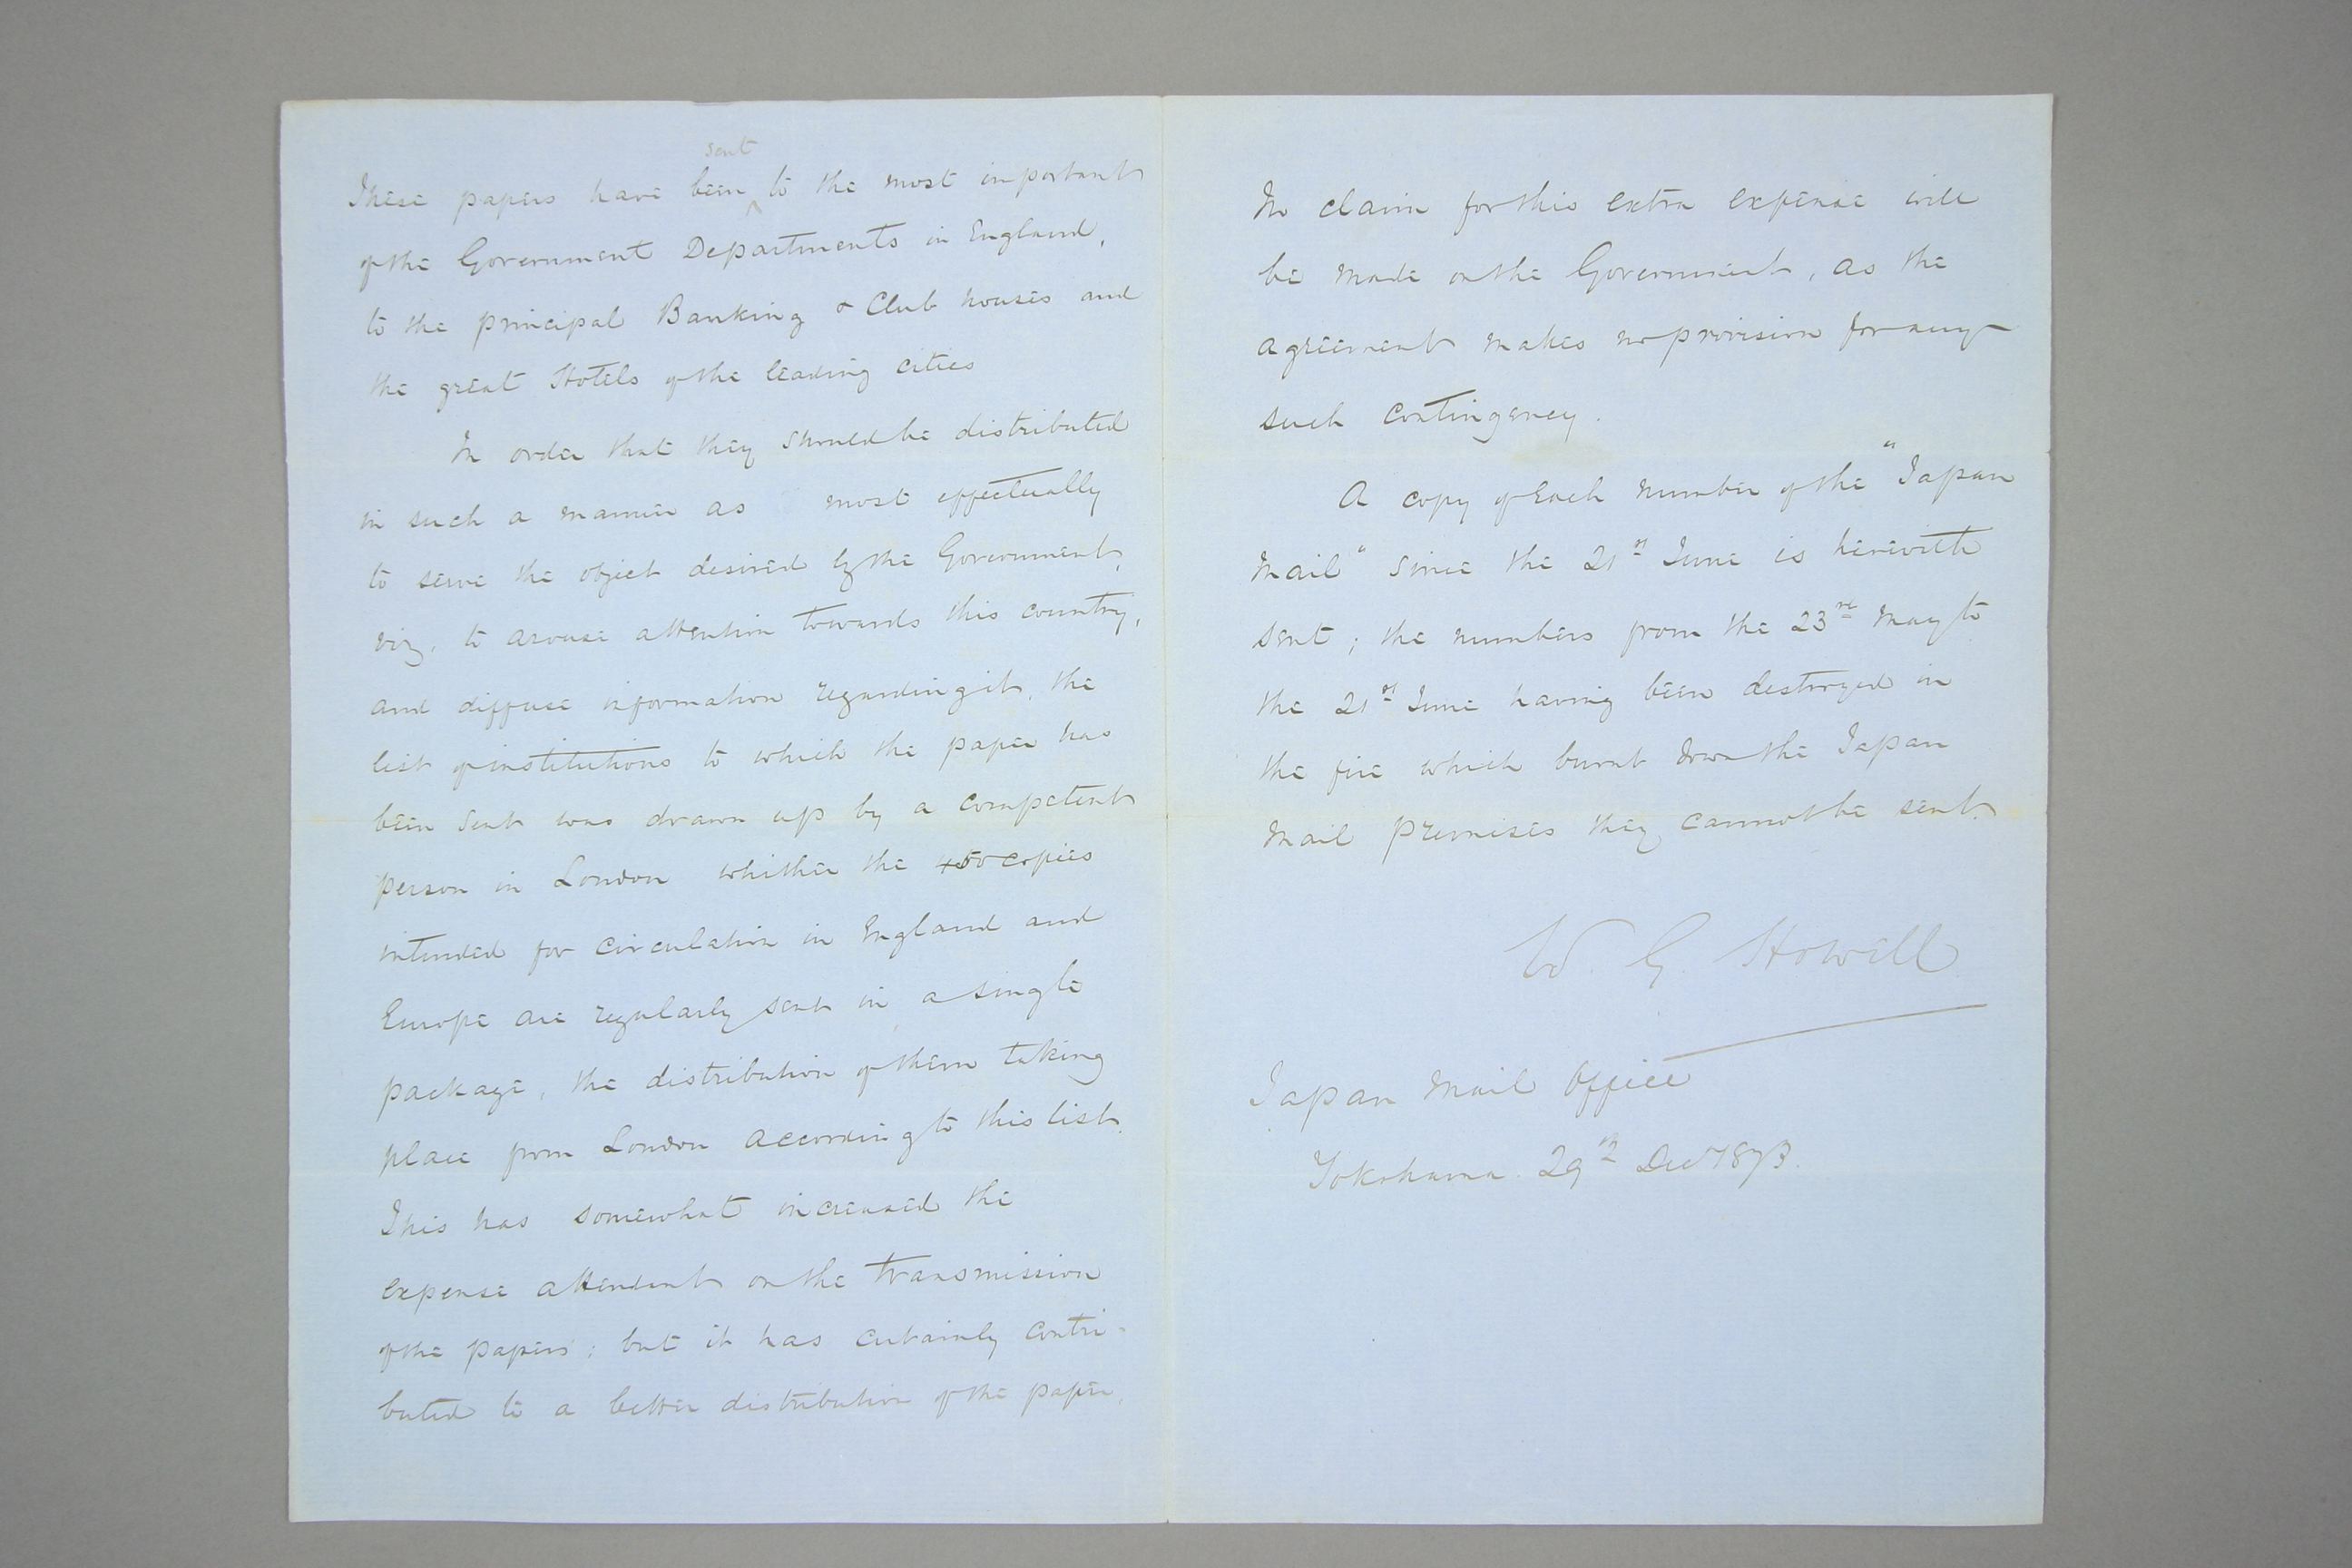 sent
These papers have been ^ to the most important
of the Government Departments in England,
to the principal Banking & Club houses and
the great Hotels of the leading cities
In order that they should be distributed
in such a manner as most effectually
to serve the object desired by the Government,
viz, to arouse attention towards this country,
and diffuse information regarding it, the
list of institutions to which the paper has
been sent was drawn up by a competent
person in London whither the 450 copies
intended for circulation in England and
Europe are regularly sent in a single
package, the distribution of them taking
place from London according to this list.
This has somewhat increased the
expense attendant on the transmission
of the papers; but it has certainly contri-
buted to a better distribution of the paper.
No claim for this extra expense will
be made on the Government, as the
agreement makes no provision for any
such contingency.
A copy of each number of the "Japan
Mail" since the 21st June is herewith
sent; the numbers from the 23rd May to
the 21st June having been destroyed in
the fire which burnt down the Japan
Mail premises they cannot be sent.
W. G. Howell
Japan Mail Office
Yokohama. 29th Dec 1873.